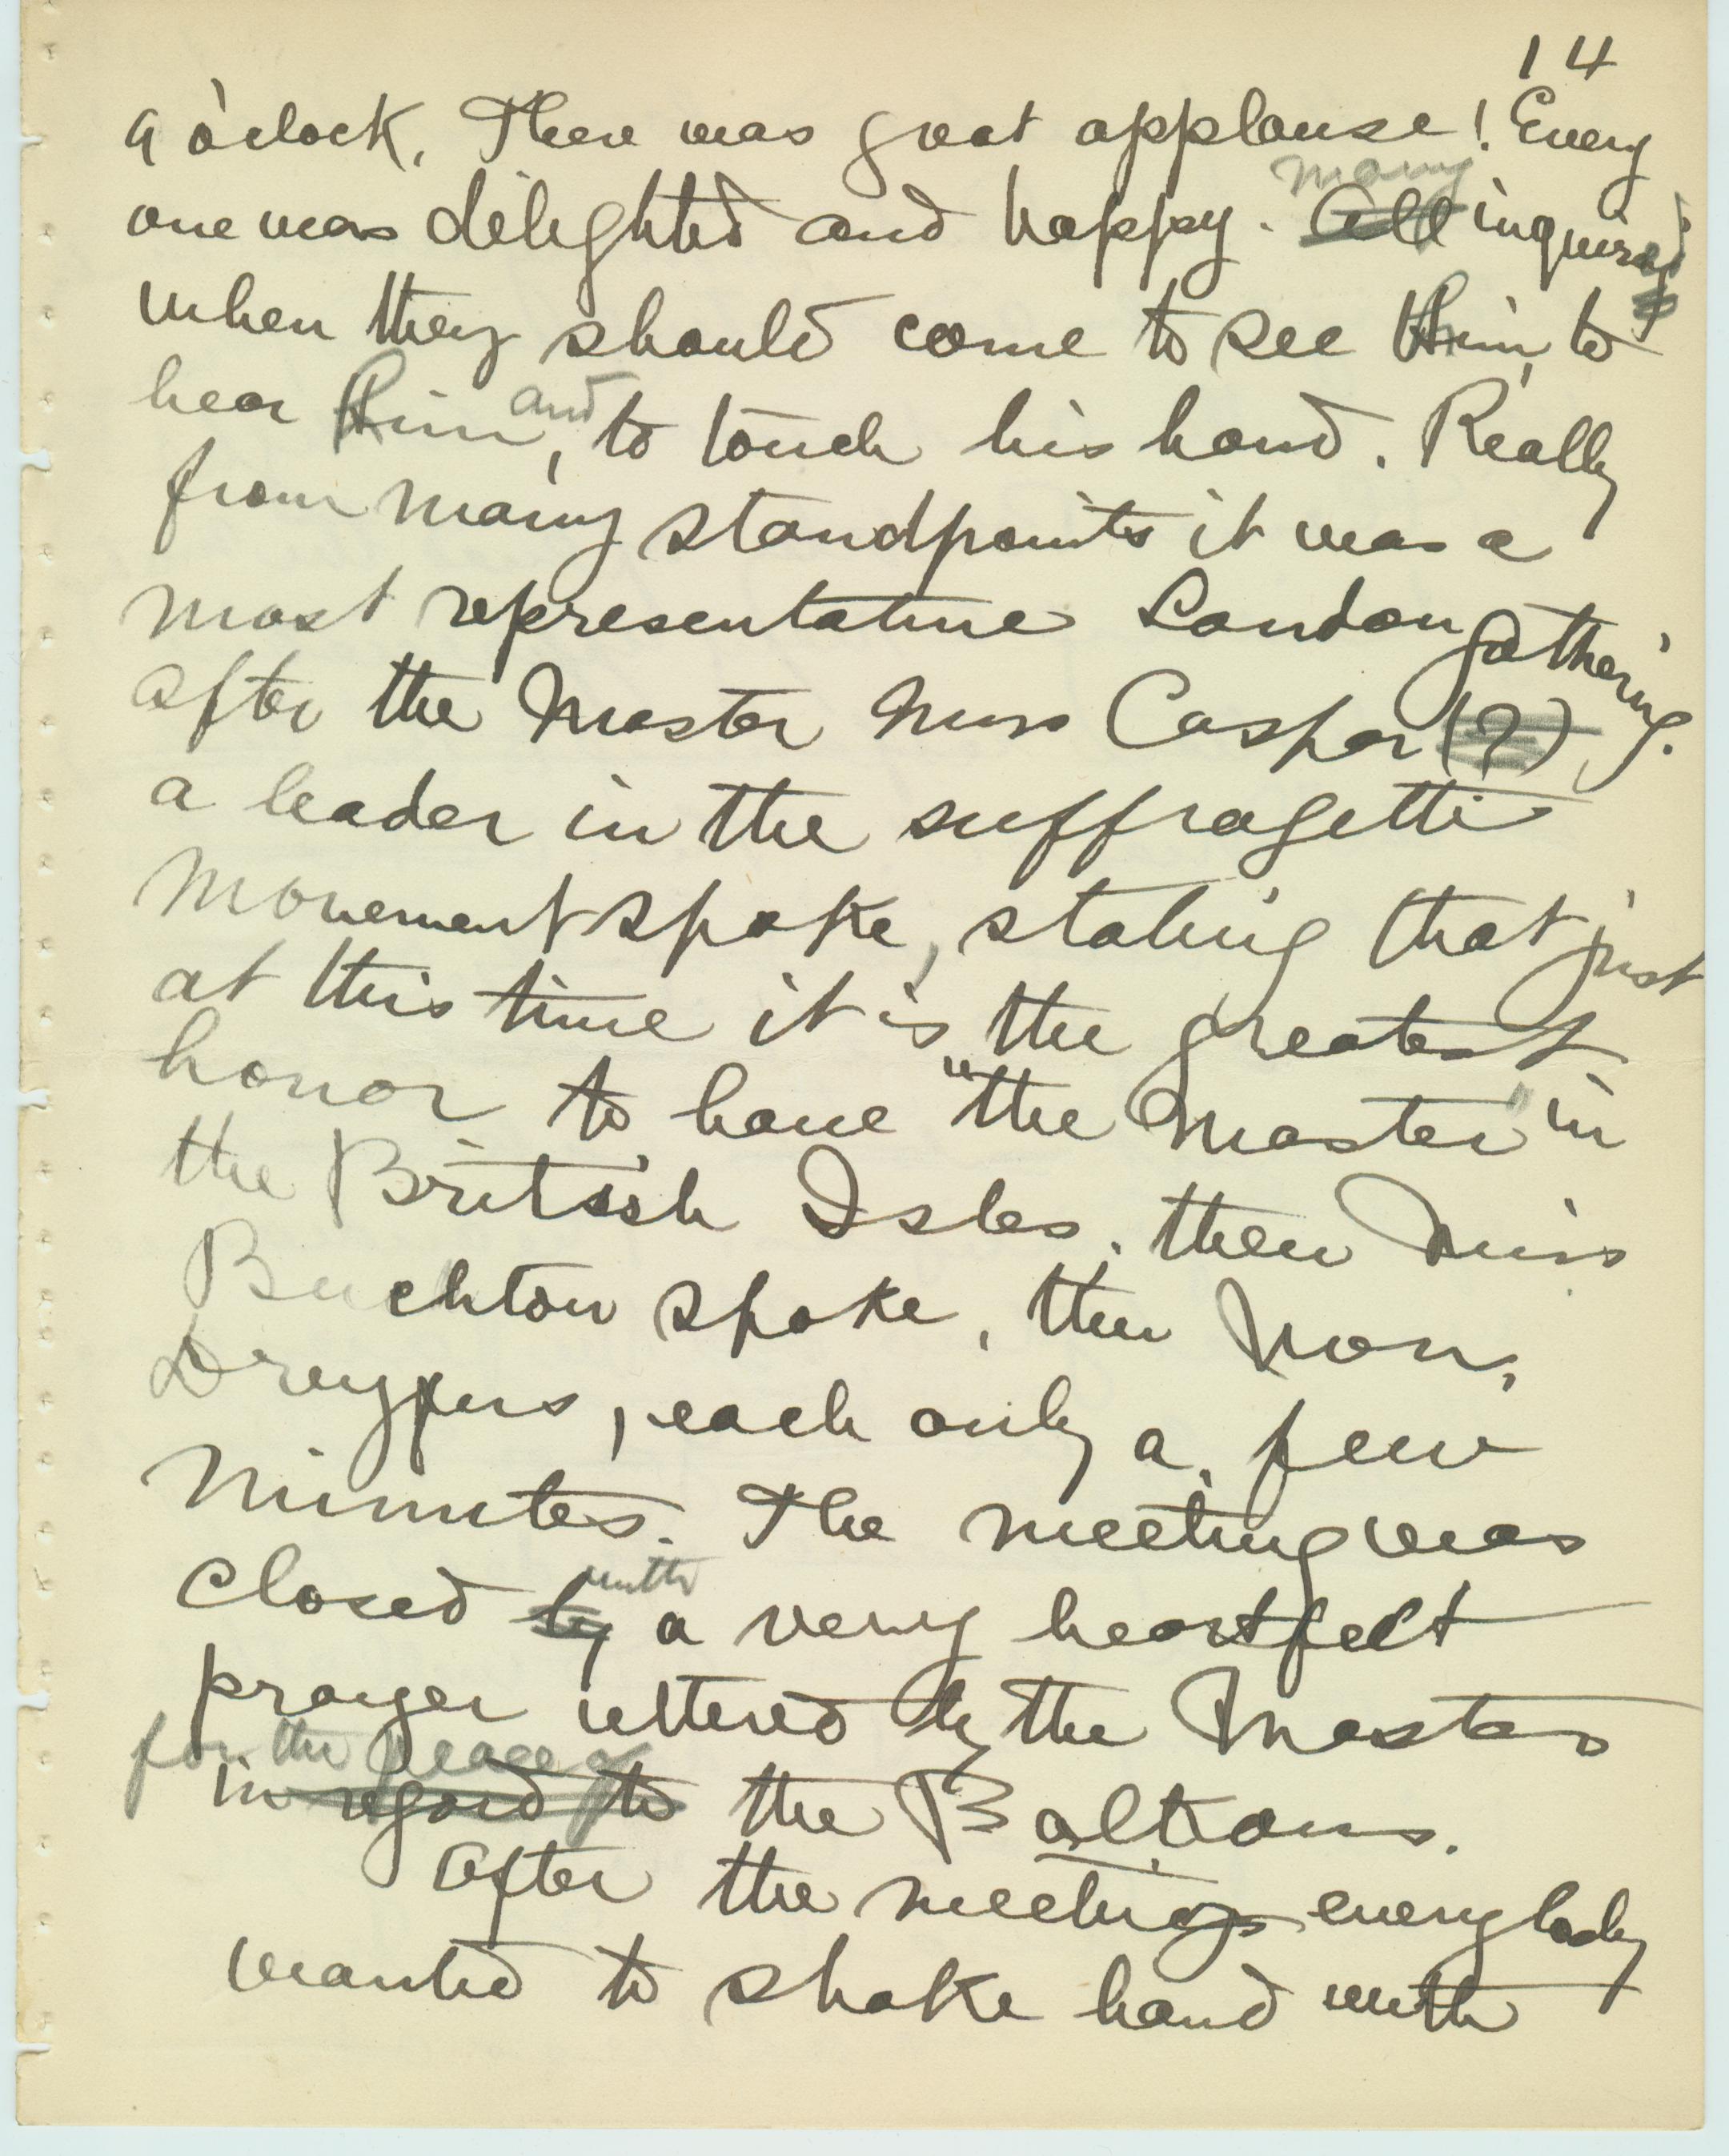 14
9 o'clock. There was great applause! Every
one was delighted and happy. many All inquired
when they should come to see Him, to
hear Him, and to touch his hand. Really
from many standpoints it was a
most representative London gathering.
After the Master Miss Caspar (?)
a leader in the suffragette
movement spoke, stating that just
at this time it is the greatest
honor to have "the Master" in
the British Isles. then Miss
Buchton spoke, then Mon.
Dreyfus, each only a few
minutes. The meeting was
closed by with a very heartfelt
prayer uttered by the Master
for the peace of
in regard to the Baltians.
After the meetings everybody
wanted to shake hand with